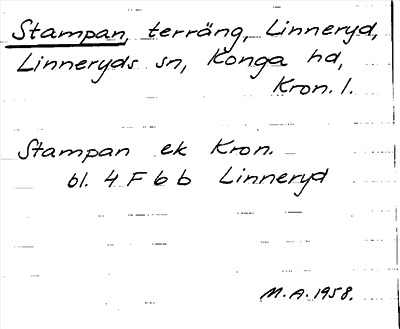 Stampan, terräng, Linneryd,
Linneryds sn, Konga hd,
Kron. l.
Stampan ek Kron.
bl. 4 F 6 b Linneryd
M.A. 1958.